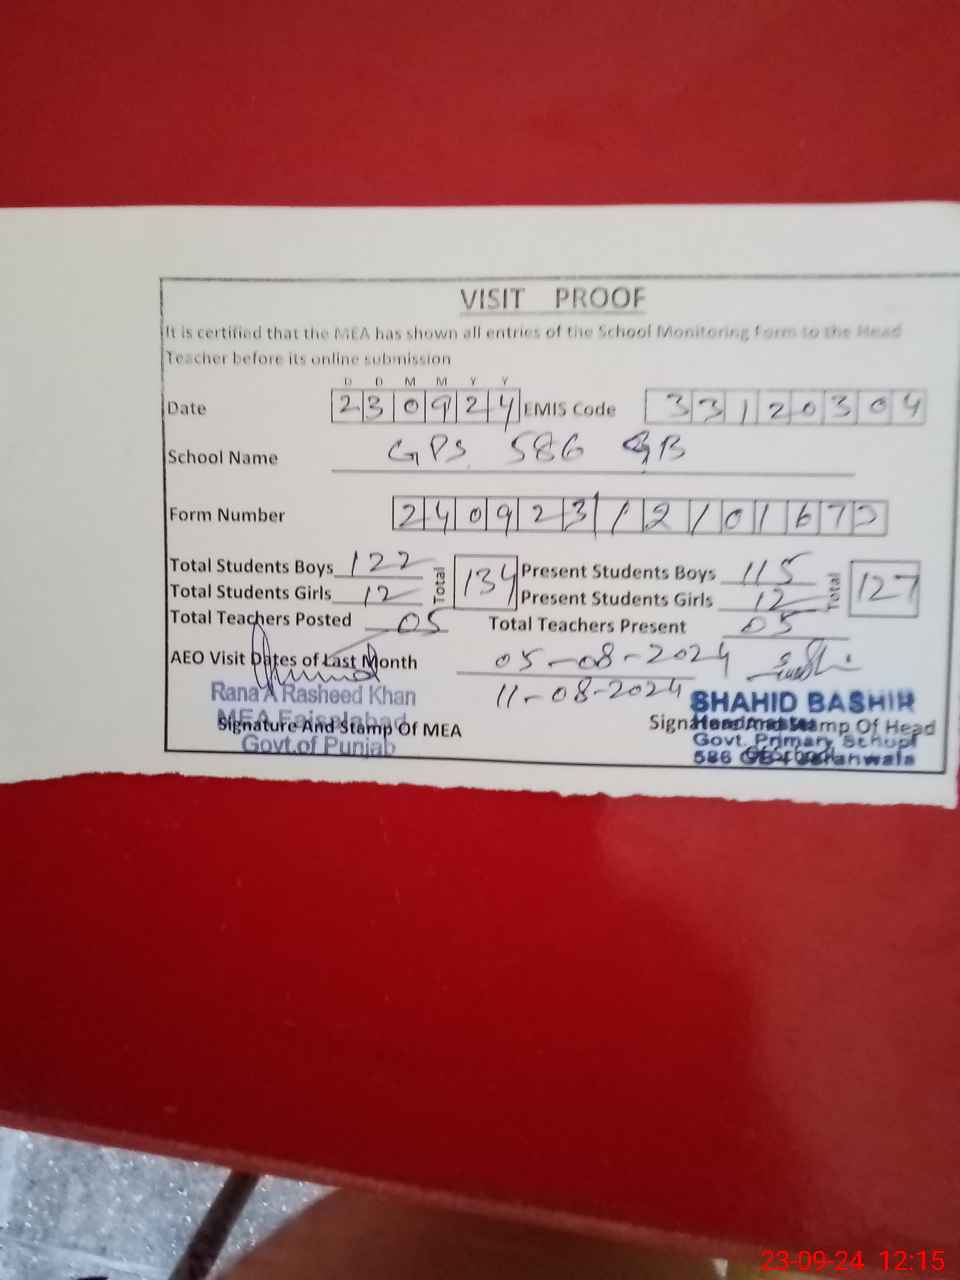 VISIT PROOF
It is certified that the MEA has shown all entries of the School Monitoring Form to the Head
Teacher before its online submission
D D M M Y Y
Date 230924 EMIS Code 33120304
School Name GPS 586 GB
Form Number 24092312101670
Total Students Boys 122 Total 134 Present Students Boys 115 Total 127
Total Students Girls 12 Present Students Girls 12
Total Teachers Posted 05 Total Teachers Present 05
AEO Visit Dates of Last Month 05-08-2024
11-08-2024
Rana A Rasheed Khan
MEA Faisalabad
Govt.of Punjab
Signature And Stamp Of MEA
SHAHID BASHIR
Govt. Primary School
586 GB
Signature And Stamp Of Head
23-09-24 12:15